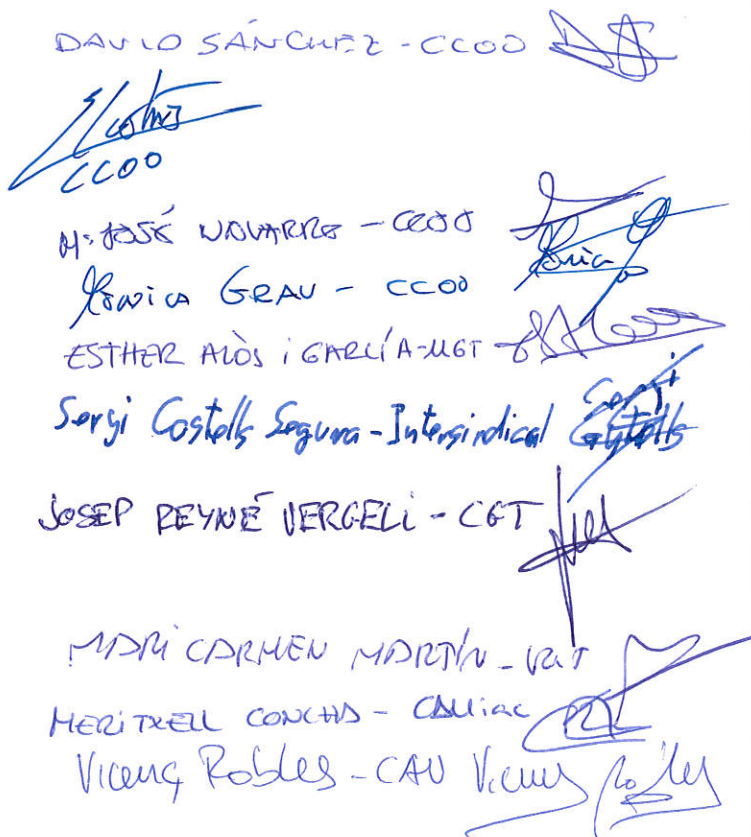 DAVID SÁNCHEZ - CCOO
CCOO
Mª JOSÉ NAVARRO - CCOO
Mònica GRAU - CCOO
ESTHER ALÒS i GARCÍA - UGT
Sergi Costells Segura - Intersindical Sergi Costells
JOSEP REYNÉ VERGELI - CGT
MARI CARMEN MARTÍN - UGT
MERITXELL CONCHA -
Vicenç Robles - CAU Vicenç Robles